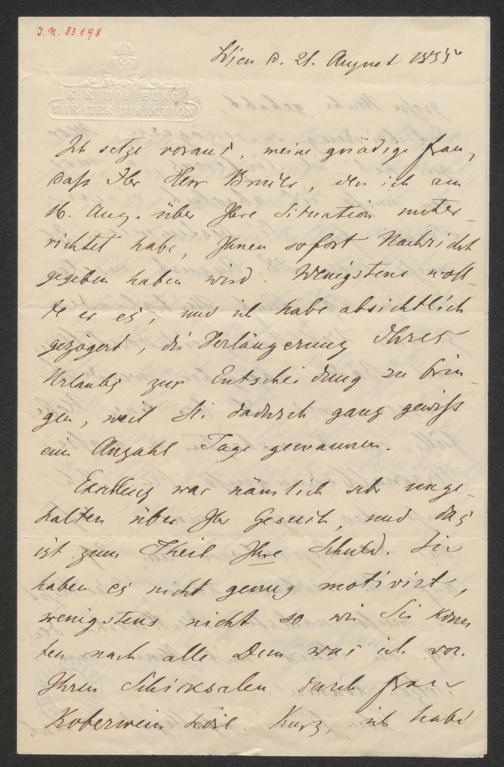 J.N. 83198
K. K. HOF-BURG
THEATER DIRECTION
Wien d. 21. August 1855
Ich setze voraus, meine gnädige Frau,
daß Ihr Herr Bruder, den ich am
16. Aug. über Ihre Situation unter-
richtet habe, Ihnen sofort Nachricht
gegeben haben wird. Wenigstens woll-
te er es, und ich habe absichtlich
gezögert, die Verlängerung Ihres
Urlaubs zur Entscheidung zu brin-
gen, weil Sie dadurch ganz gewiß
ein Anzahl Tage gewannen.
Exellenz war nämlich sehr unge-
halten über Ihr Gesuch, und das
ist zum Theil Ihre Schuld. Sie
haben es nicht genug motivirt,
wenigstens nicht so wie Sie konn
ten nach alle Dem was ich von
Ihren Schicksalen durch Frau
Koberwein höre. Kurz, ich habe